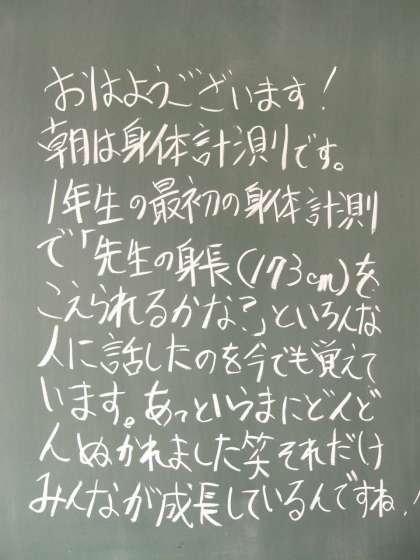 おはようございます!
朝は身体計測です。
1年生の最初の身体計測
で「先生の身長(173cm)を
こえられるかな?」といろんな
人に話したのを今でも覚えて
います。あっというまにどんど
んぬかれました笑それだけ
みんなが成長しているんですね!